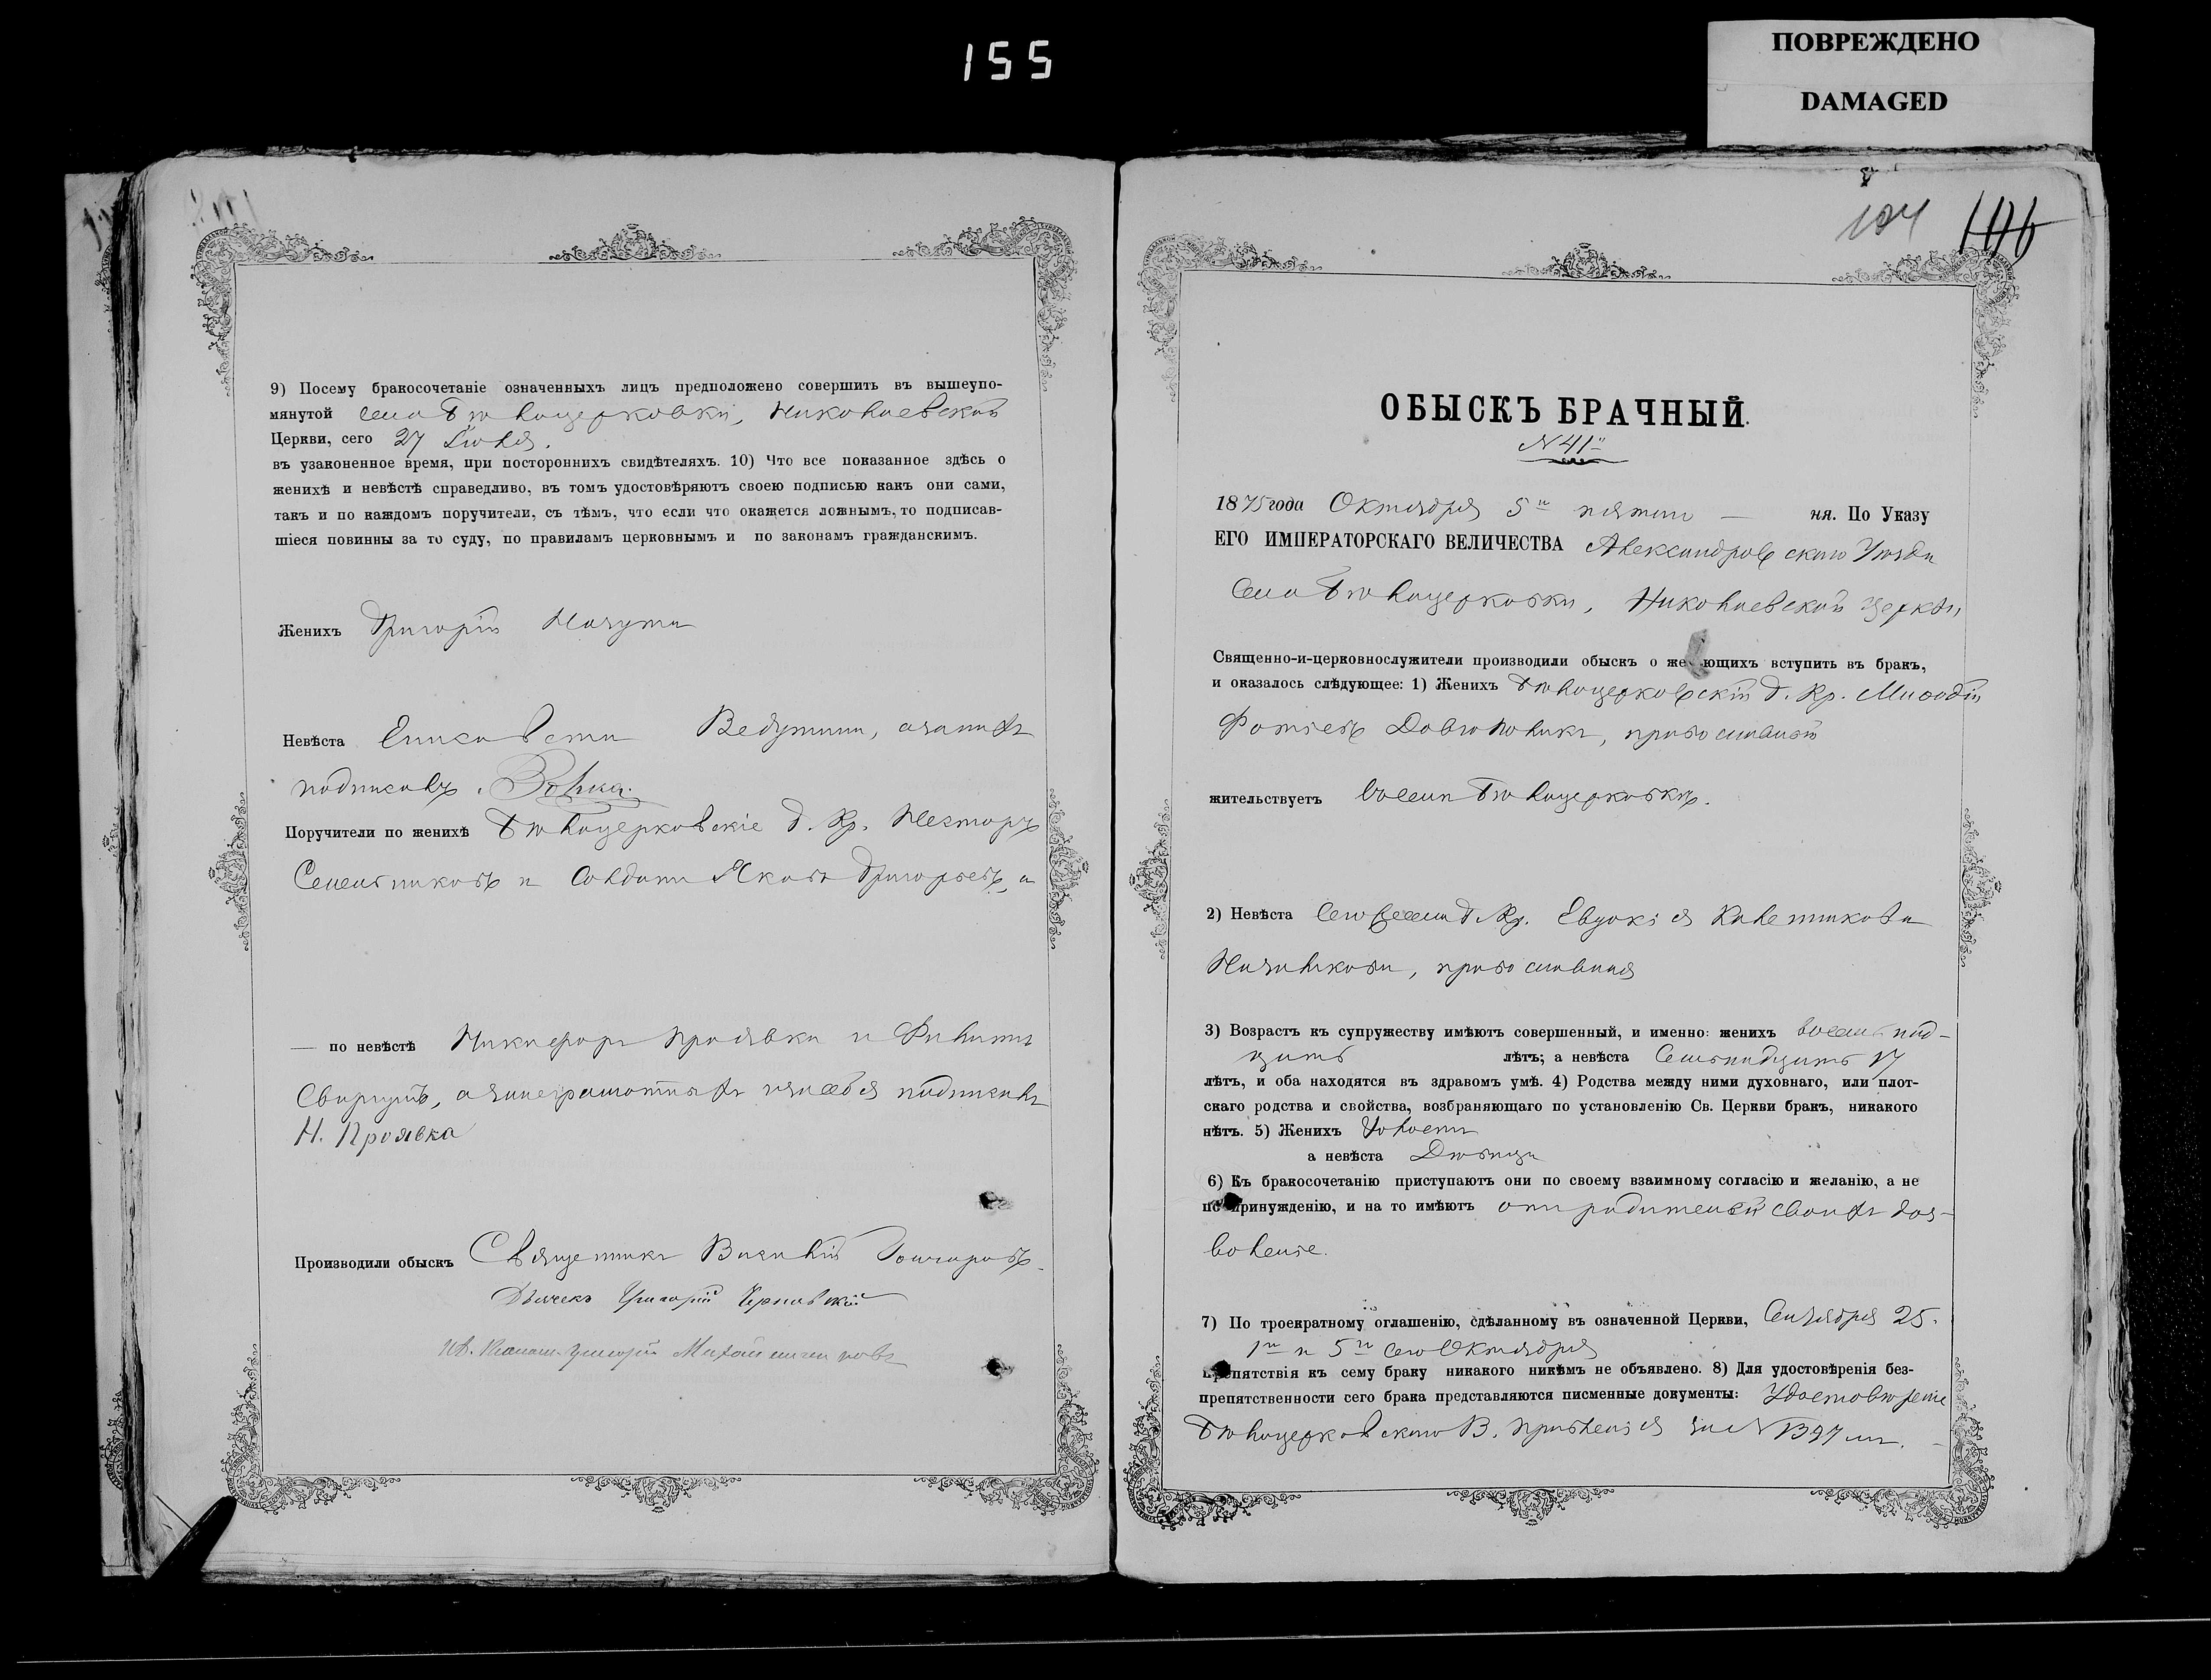 155
ПОВРЕЖДЕНО
DAMAGED
9) Посему бракосочетаніе означенныхъ лицъ предположено совершить въ вышеупо-
мянутой села Бѣлоцерковки, Николаевской
Церкви, сего 27 Іюля.
въ узаконенное время, при постороннихъ свидѣтеляхъ. 10) Что все показанное здѣсь о
женихѣ и невѣстѣ справедливо, въ томъ удостовѣряютъ своею подписью какъ они сами,
такъ и по каждомъ поручители, съ тѣмъ, что если что окажется ложнымъ, то подписав-
шіеся повинны за то суду, по правиламъ церковнымъ и по законамъ гражданскимъ.
Женихъ Григорій
Невѣста Елисавета
подписалъ
Поручители по женихѣ Бѣлоцерковскіе Г. Кр. Несторъ
и Солдатъ Яковъ Григорьевъ, а
— по невѣстѣ Никифоръ Проявка и Филипъ
подписалъ
Н. Проявка
Производили обыскъ Священникъ Виталій Гончаровъ
Дьячекъ Григорій
104 106
ОБЫСКЪ БРАЧНЫЙ.
N 41й
1875 года Октября 5го пятаго — ня. По Указу
ЕГО ИМПЕРАТОРСКАГО ВЕЛИЧЕСТВА Александровскаго Уѣзда
Села Бѣлоцерковки, Николаевской церкви
Священно-и-церковнослужители производили обыскъ о же ющихъ вступить въ бракъ,
и оказалось слѣдующее: 1) Женихъ Бѣлоцерковскій Г. Кр. Миѳодій
Фотіевъ, православный
жительствуетъ въ селѣ Бѣлоцерковкѣ.
2) Невѣста сего села Г. Кр. Евдокія
православная
3) Возрастъ къ супружеству имѣютъ совершенный, и именно: женихъ восемнад-
цать лѣтъ; а невѣста Семнадцать 17
лѣтъ, и оба находятся въ здравомъ умѣ. 4) Родства между ними духовнаго, или плот-
скаго родства и свойства, возбраняющаго по установленію Св. Церкви бракъ, никакого
нѣтъ. 5) Женихъ Холостъ
а невѣста Дѣвица
6) Къ бракосочетанію приступаютъ они по своему взаимному согласію и желанію, а не
по принужденію, и на то имѣютъ отъ родителей своихъ доз-
воленіе.
7) По троекратному оглашенію, сдѣланному въ означенной Церкви, Сентября 25.
1го и 5го сего Октября
препятствія къ сему браку никакого никѣмъ не объявлено. 8) Для удостовѣренія без-
препятственности сего брака представляются писменные документы: Удостовѣреніе
Бѣлоцерковскаго В. Правленія за N 1397 мъ.